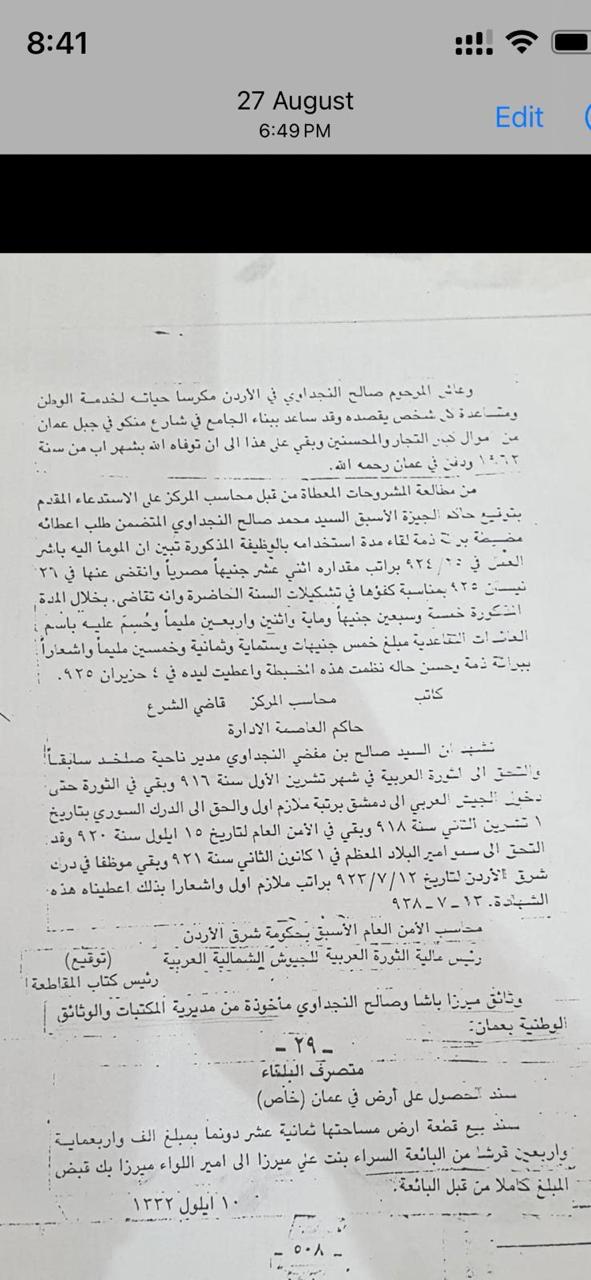 8:41
27 August
6:49 PM
Edit
وعاش المرحوم صالح النجداوي في الأردن مكرسا حياته لخدمة الوطن
ومساعدة كل شخص يقصده وقد ساعد ببناء الجامع في شارع منكو في جبل عمان
من اموال كبار التجار والمحسنين وبقي على هذا الى ان توفاه الله بشهر اب من سنة
ودفن في عمان رحمه الله.
من مطالعة المشروحات المعطاة من قبل محاسب المركز على الاستدعاء المقدم
بتوقيع حاكم الجيزة الأسبق السيد محمد صالح النجداوي المتضمن طلب اعطائه
مضبطة براءة ذمة لقاء مدة استخدامه بالوظيفة المذكورة تبين ان المومأ اليه باشر
العمل في ٩٢٤ براتب مقداره اثني عشر جنيهاً مصرياً وانقضى عنها في ٢٦
نيسان ٩٢٥ بمناسبة كفؤها في تشكيلات السنة الحاضرة وانه تقاضى. بخلال المدة
المذكورة خمسة وسبعين جنيهاً وماية واثنين واربعين مليماً وحُسم عليه باسم
العائدات التقاعدية مبلغ خمس جنيهات وستماية وثمانية وخمسين مليماً واشعاراً
ببرائة ذمة وحسن حاله نظمت هذه المضبطة واعطيت ليده في ٤ حزيران ٩٢٥.
كاتب محاسب المركز قاضي الشرع
حاكم العاصمة الادارة
نشهد ان السيد صالح بن مفضي النجداوي مدير ناحية صلخد سابقاً
والتحق الى الثورة العربية في شهر تشرين الأول سنة ٩١٦ وبقي في الثورة حتى
دخول الجيش العربي الى دمشق برتبة ملازم اول والحق الى الدرك السوري بتاريخ
١ تشرين الثاني سنة ٩١٨ وبقي في الأمن العام لتاريخ ١٥ ايلول سنة ٩٢٠ وقد
التحق الى سمو امير البلاد المعظم في ١ كانون الثاني سنة ٩٢١ وبقي موظفا في درك
شرق الأردن لتاريخ ٩٢٣/٧/١٢ براتب ملازم اول واشعارا بذلك اعطيناه هذه
الشهادة. ١٣ - ٧ - ٩٣٨
محاسب الأمن العام الأسبق بحكومة شرق الأردن
رئيس مالية الثورة العربية للجيوش الشمالية العربية (توقيع)
رئيس كتاب المقاطعة
وثائق ميرزا باشا وصالح النجداوي مأخوذة من مديرية المكتبات والوثائق
الوطنية بعمان:
- ٢٩ -
متصرف البلقاء
سند الحصول على أرض في عمان (خاص)
سند بيع قطعة ارض مساحتها ثمانية عشر دونما بمبلغ الف واربعماية
واربعين قرشا من البائعة السراء بنت علي ميرزا الى امير اللواء ميرزا بك قبض
المبلغ كاملا من قبل البائعة.
١٠ ايلول ١٣٣٢
- ٥٠٨ -